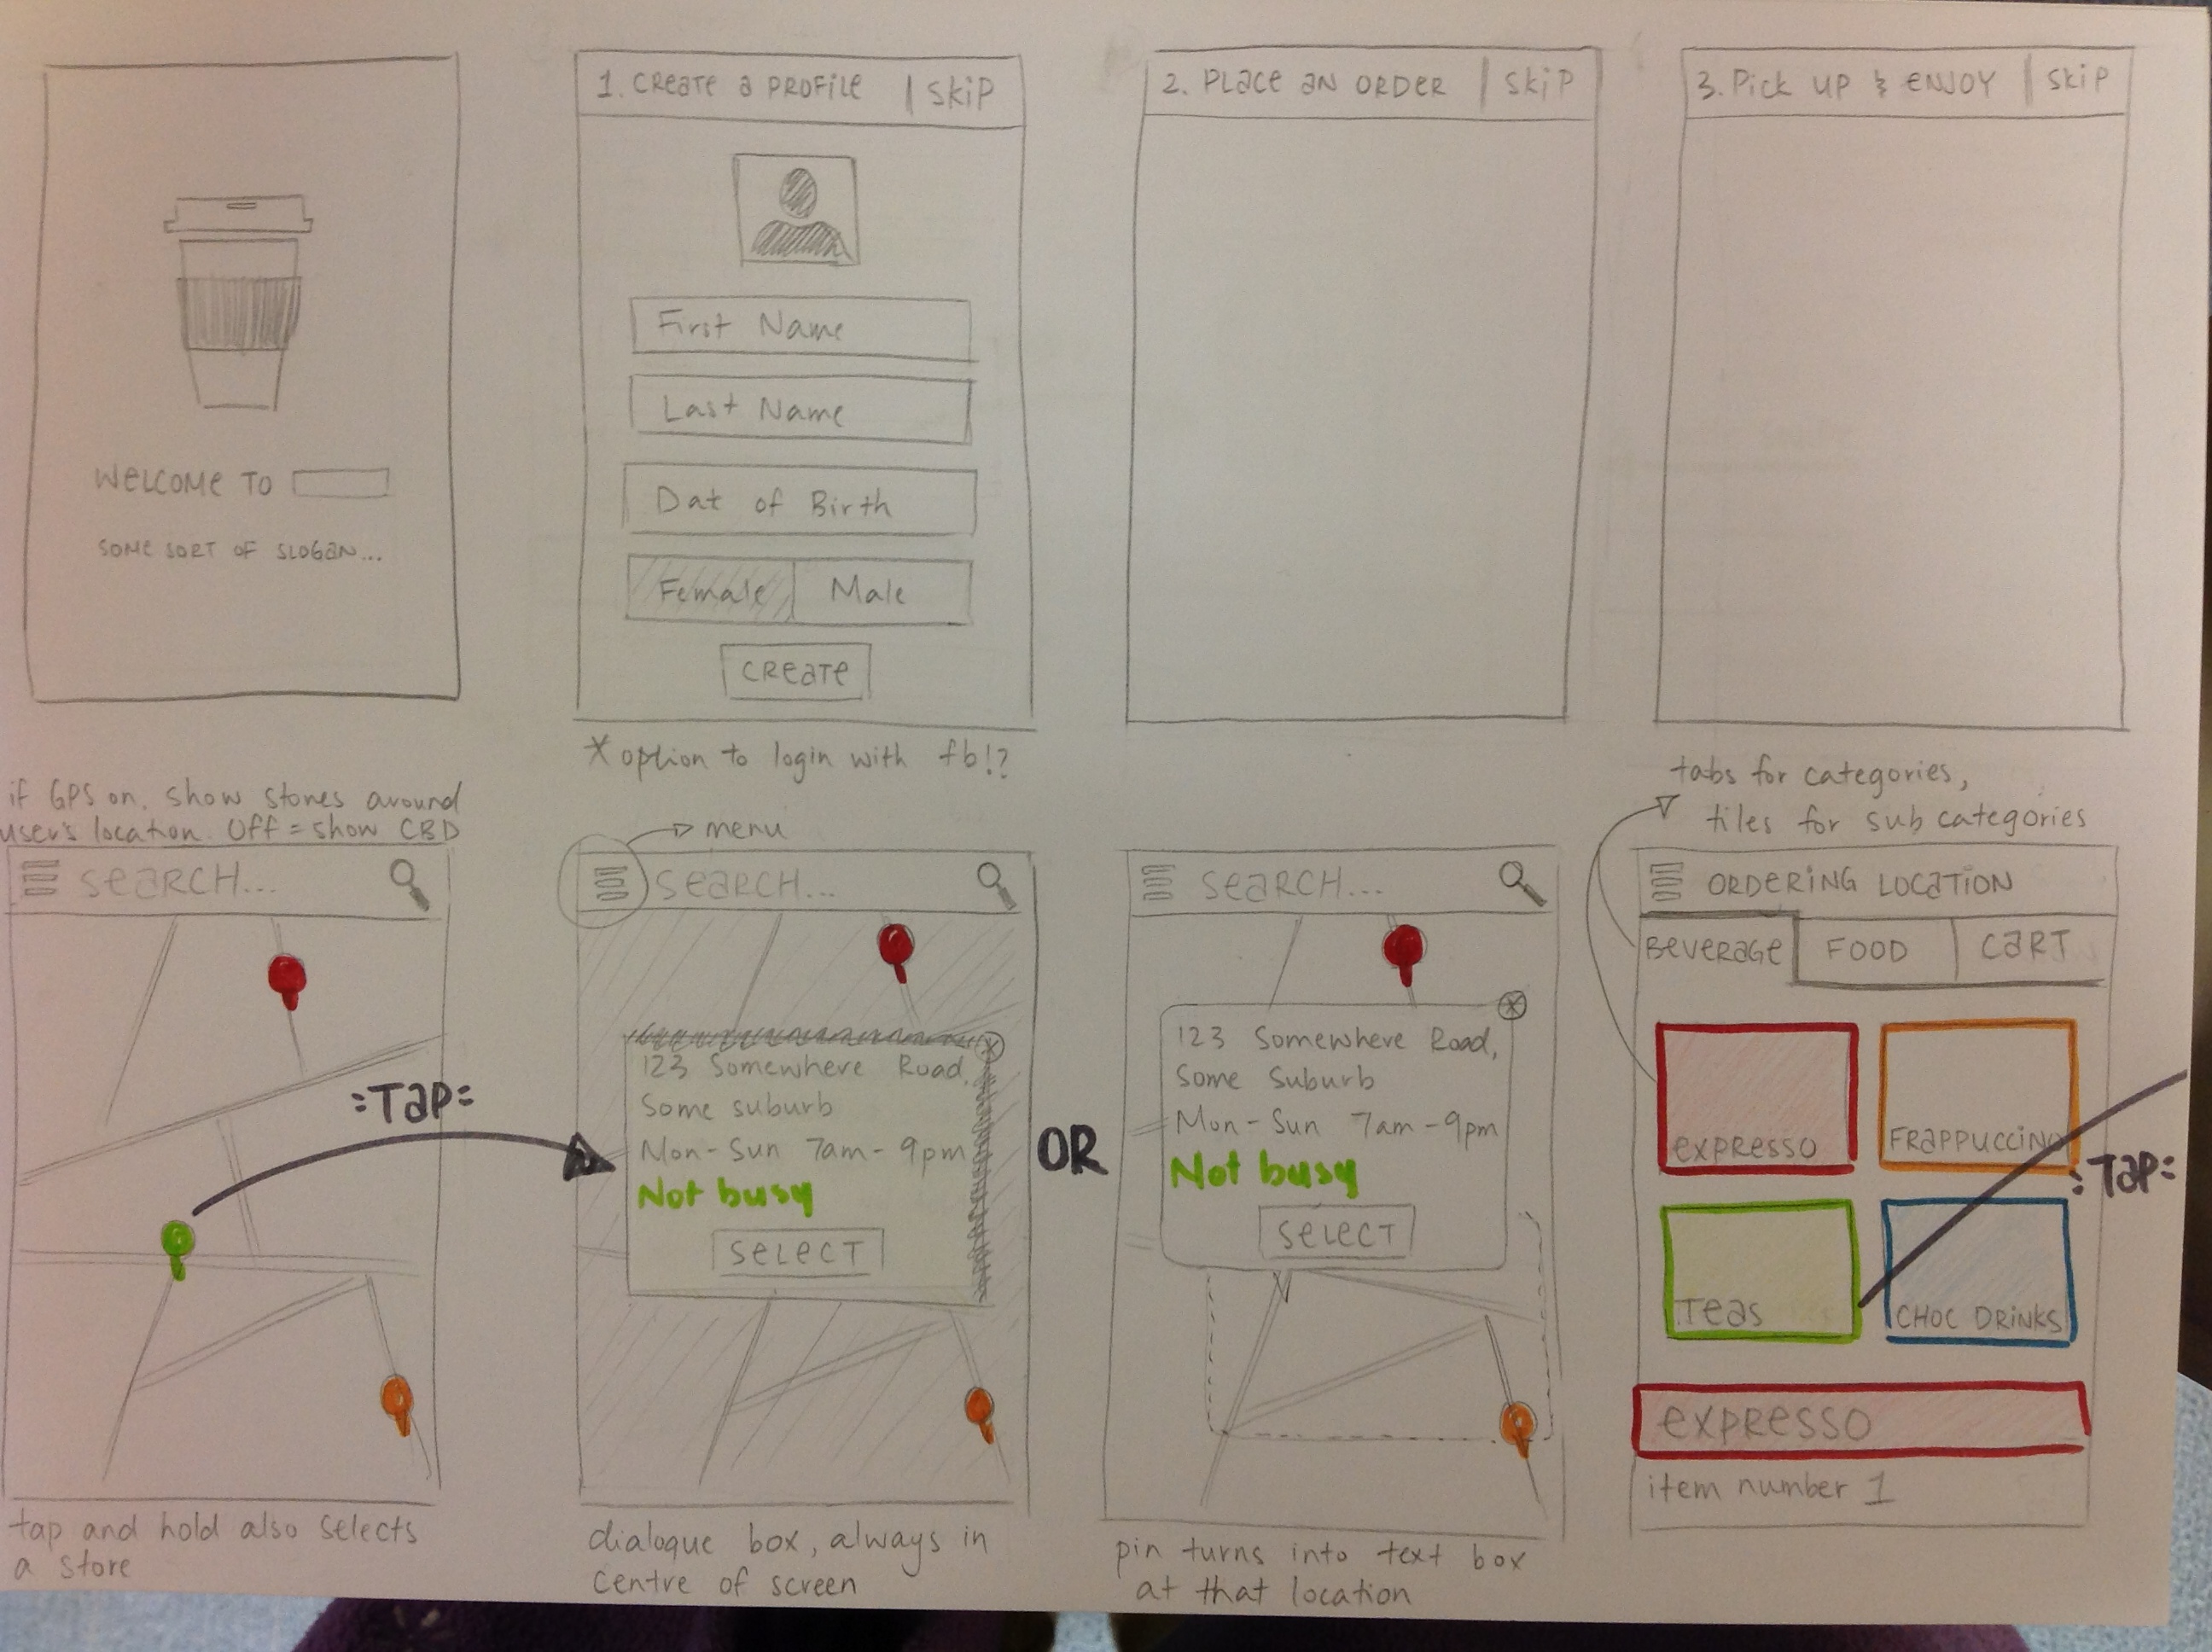 WELCOME TO
SOME SORT OF SLOGAN...
1. CREATE A PROFILE | SKIP
First Name
Last Name
Dat of Birth
Female Male
CREATE
* option to login with fb!?
2. PLACE AN ORDER | SKIP
3. Pick UP & ENJOY | SKIP
if GPS on, show stores around
user's location. Off = show CBD
SEARCH...
=TAP=
tap and hold also selects
a store
menu
SEARCH...
123 Somewhere Road,
Some suburb
Mon-Sun 7am-9pm
Not busy
SELECT
dialogue box, always in
centre of screen
OR
SEARCH...
123 Somewhere Road,
Some Suburb
Mon-Sun 7am-9pm
Not busy
SELECT
pin turns into text box
at that location
tabs for categories,
tiles for sub categories
ORDERING LOCATION
BEVERAGE FOOD CART
EXPRESSO FRAPPUCCINO
=TAP=
TEAS CHOC DRINKS
EXPRESSO
item number 1